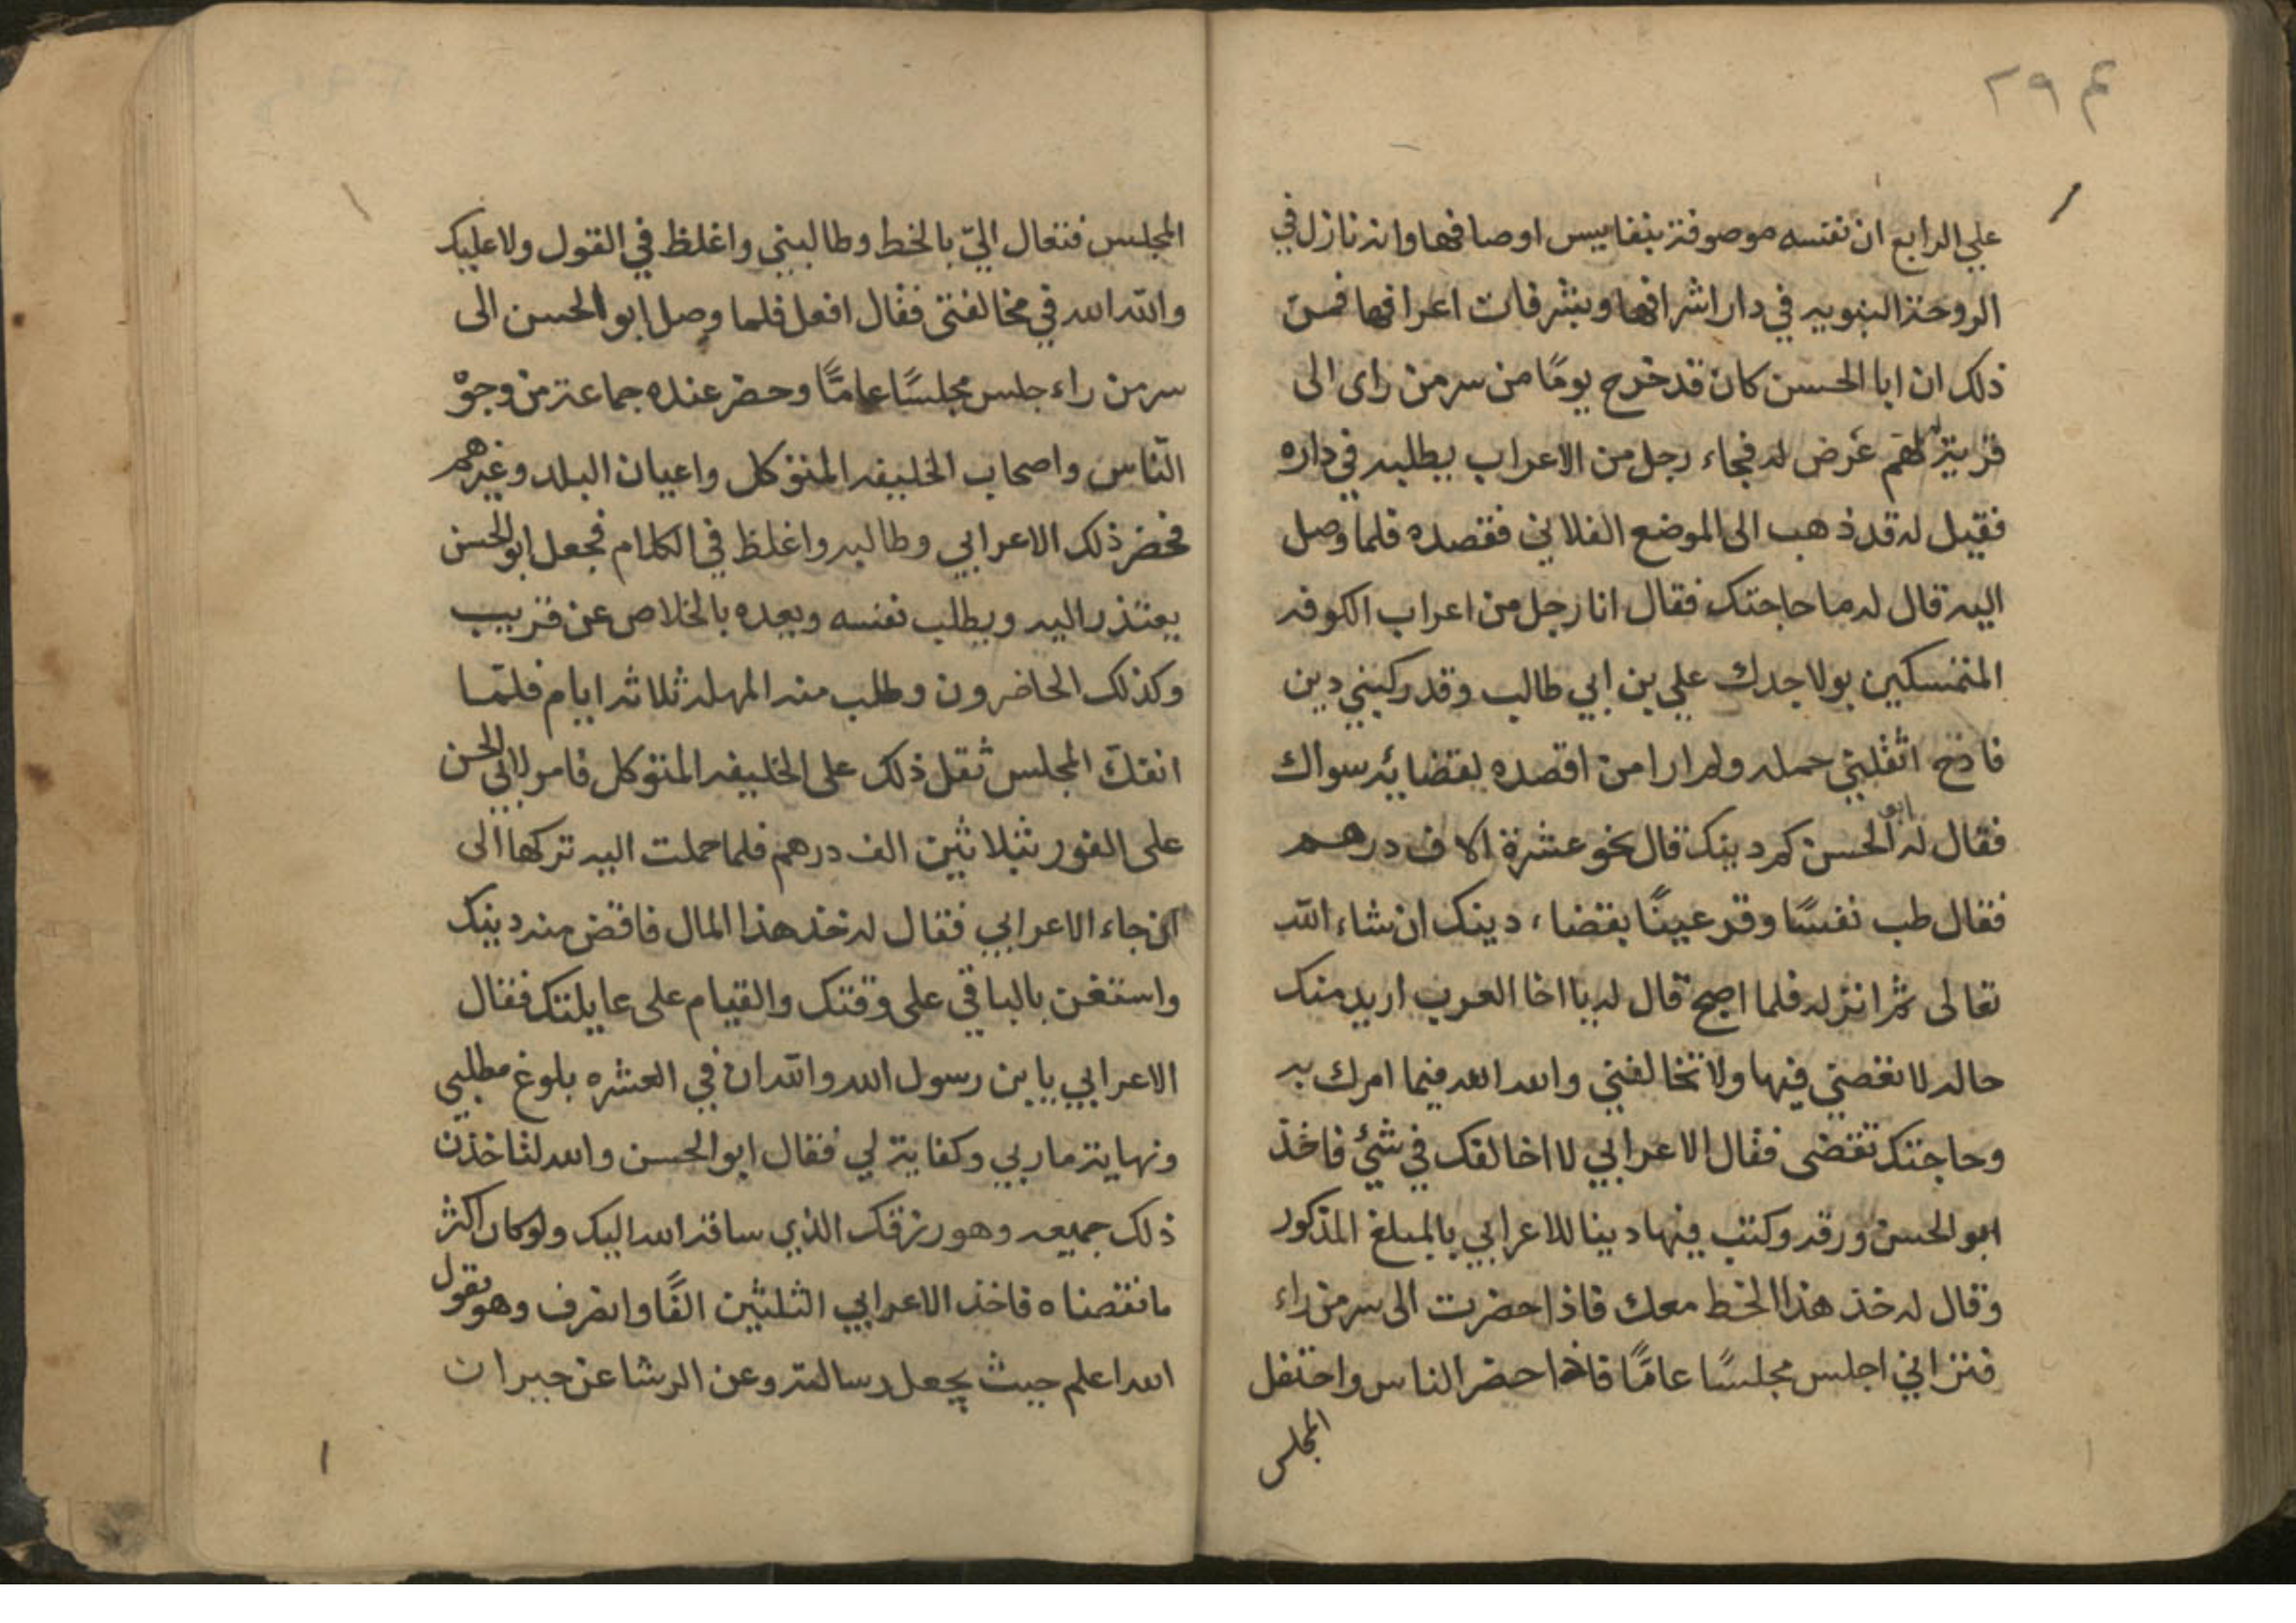 ٢٩٤
علي الرابع ان نفسه موصوفة بنفايس اوصافها وانه نازل في
الدوحة النبويه في دار اشرافها وبشرفات اعرافها فمن
ذلك ان ابا الحسن كان قد خرج يومًا من سر من راى الى
قرية لمهم عرض له فجاء رجل من الاعراب يطلبه في داره
فقيل له قد ذهب الى الموضع الفلاني فقصده فلما وصل
اليه قال له ما حاجتك فقال انا رجل من اعراب الكوفه
المتمسكين بولا جدك علي بن ابي طالب وقد ركبني دين
فادح اثقلني حمله ولم ار امن اقصده لقضايه سواك
فقال له ابو الحسن كم دينك قال نحو عشرة الاف درهم
فقال طب نفسًا وقر عينًا بقضاء دينك ان شاء الله
تعالى ثم انزله فلما اصبح قال له يا اخا العرب اريد منك
حاله لا تعصني فيها ولا تخالفني والله الله فيما امرك به
وحاجتك تقضى فقال الاعرابي لا اخالفك في شئ فاخذ
ابو الحسن ورقه وكتب فيها دينا للاعرابي بالمبلغ المذكور
وقال له خذ هذا الخط معك فاذا حضرت الى سر من راء
فتراني اجلس مجلسًا عامًا فاذا حضر الناس واحتفل
المجلس
المجلس فتعال اليّ بالخط وطالبني واغلظ في القول ولا عليك
والله الله في مخالفتي فقال افعل فلما وصل ابو الحسن الى
سر من راء جلس مجلسًا عامًّا وحضر عنده جماعة من وجوْ
النّاس واصحاب الخليفه المتوكل واعيان البلد وغيرهم
فحضر ذلك الاعرابي وطالبه واغلظ في الكلام فجعل ابو الحسن
يعتذر اليه ويطلب نفسه ويعده بالخلاص عن قريب
وكذلك الحاضرون وطلب منه المهله ثلاثه ايام فلمّا
انفكّ المجلس نقل ذلك على الخليفه المتوكل فامر لابي الحسن
على الفور بثلاثين الف درهم فلما حملت اليه تركها الى
ان جاء الاعرابي فقال له خذ هذا المال فاقض منه دينك
واستعن بالباقي على وقتك والقيام على عايلتك فقال
الاعرابي يا بن رسول الله والله ان في العشره بلوغ مطلبي
ونهاية ماربي وكفاية لي فقال ابو الحسن والله لتاخذن
ذلك جميعه وهو رزقك الذي ساقه الله اليك ولو كان اكثر
ما نقصناه فاخذ الاعرابي الثلثين الفًا وانصرف وهو يقول
الله اعلم حيث يجعل رسالته وعن الرشا عن جبران